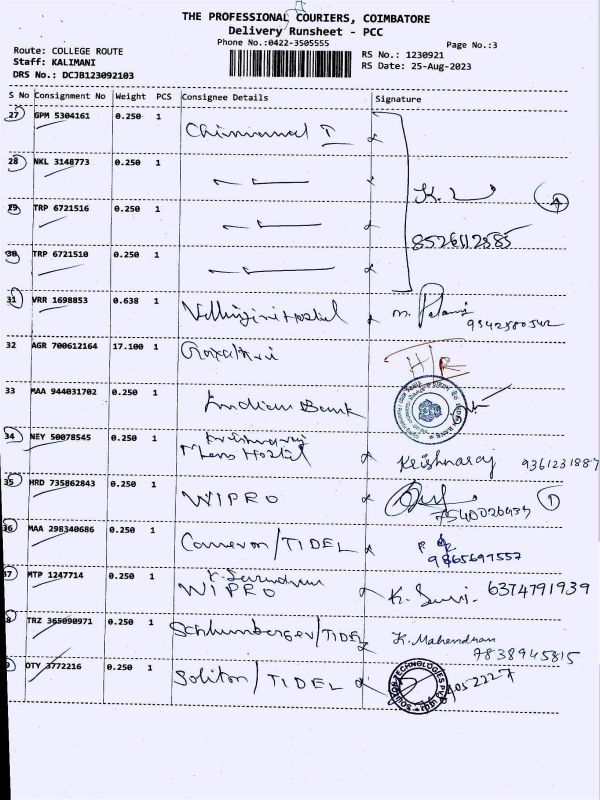 THE PROFESSIONAL COURIERS, COIMBATORE
Delivery Runsheet - PCC
Phone No.:0422-3505555
Page No.:3
Route: COLLEGE ROUTE
RS No.: 1230921
Staff: KALIMANI
RS Date: 25-Aug-2023
DRS No.: DCJB123092103
S No Consignment No Weight PCS Consignee Details Signature
27 GPM 5304161 0.250 1
28 NKL 3148773 0.250 1
29 TRP 6721516 0.250 1
8526112885
30 TRP 6721510 0.250 1
31 VRR 1698853 0.638 1
32 AGR 700612164 17.100 1
HR
33 MAA 944031702 0.250 1 Indian Bank
34 NEY 50078545 0.250 1 Krishnaraj Mens Hostel Krishnaraj 9361231887
35 HRD 735862843 0.250 1 WIPRO
36 MAA 298340686 0.250 1 Cameron/TIDEL 9865697557
37 MTP 1247714 0.250 1 WIPRO 6374791939
8 TRZ 365090971 0.250 1 Schlumberger/TIDEL K. Mahendran 9838945815
9 DTY 3772216 0.250 1 Soliton/TIDEL